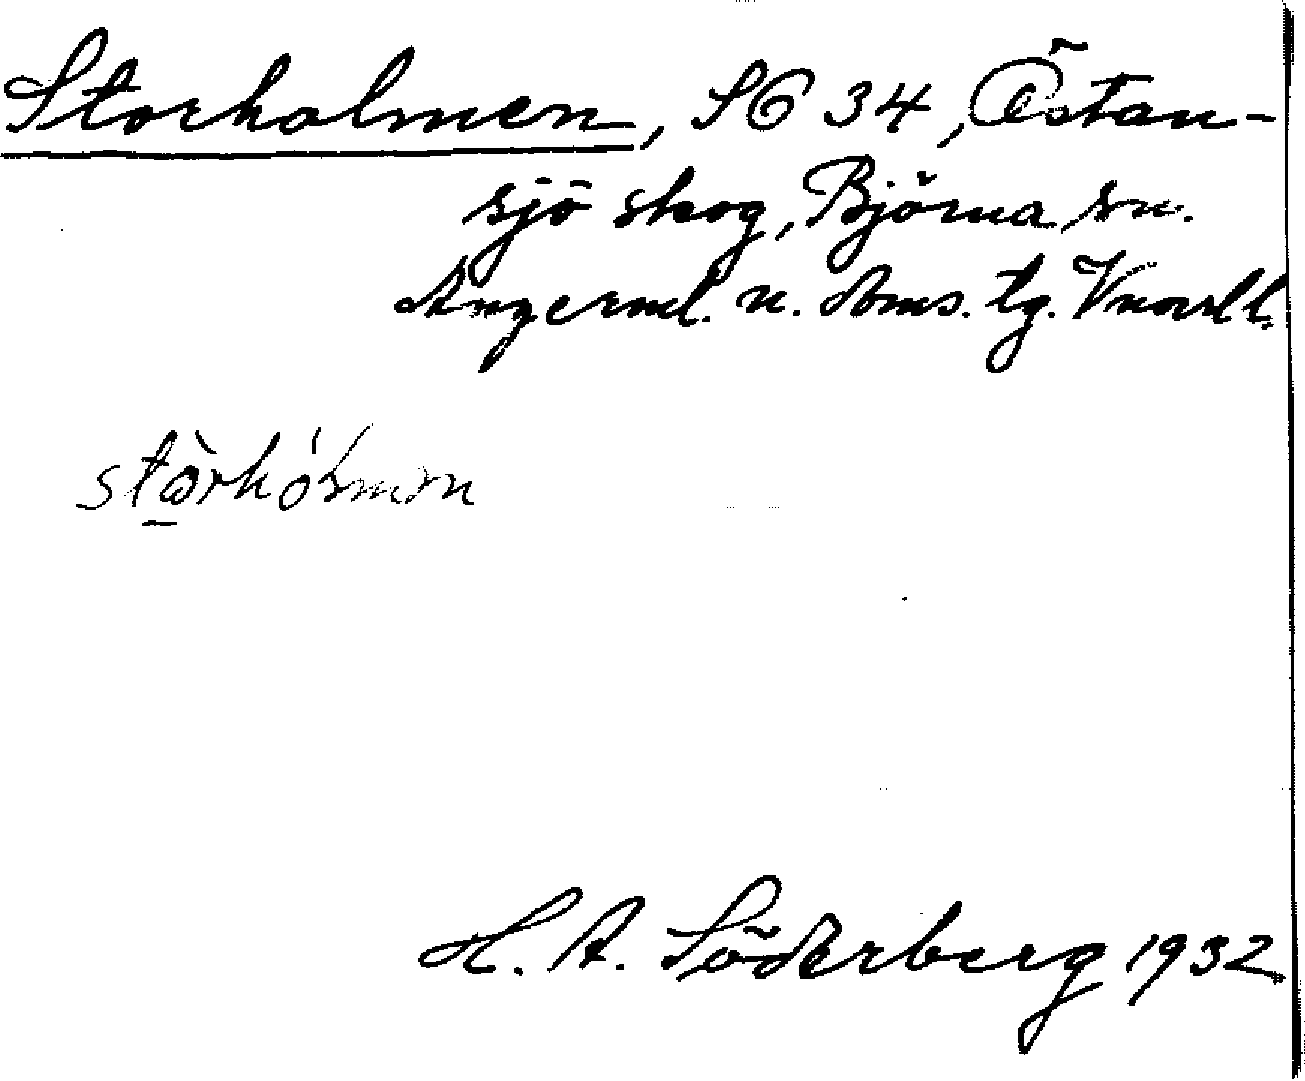 Storholmen, SO 34, Östan-
sjö skog, Björna sn.
Ångerml. n. doms. tg. Vnorrl.
H. A. Söderberg 1932